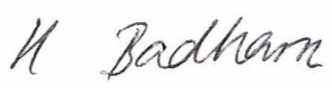 H Badham